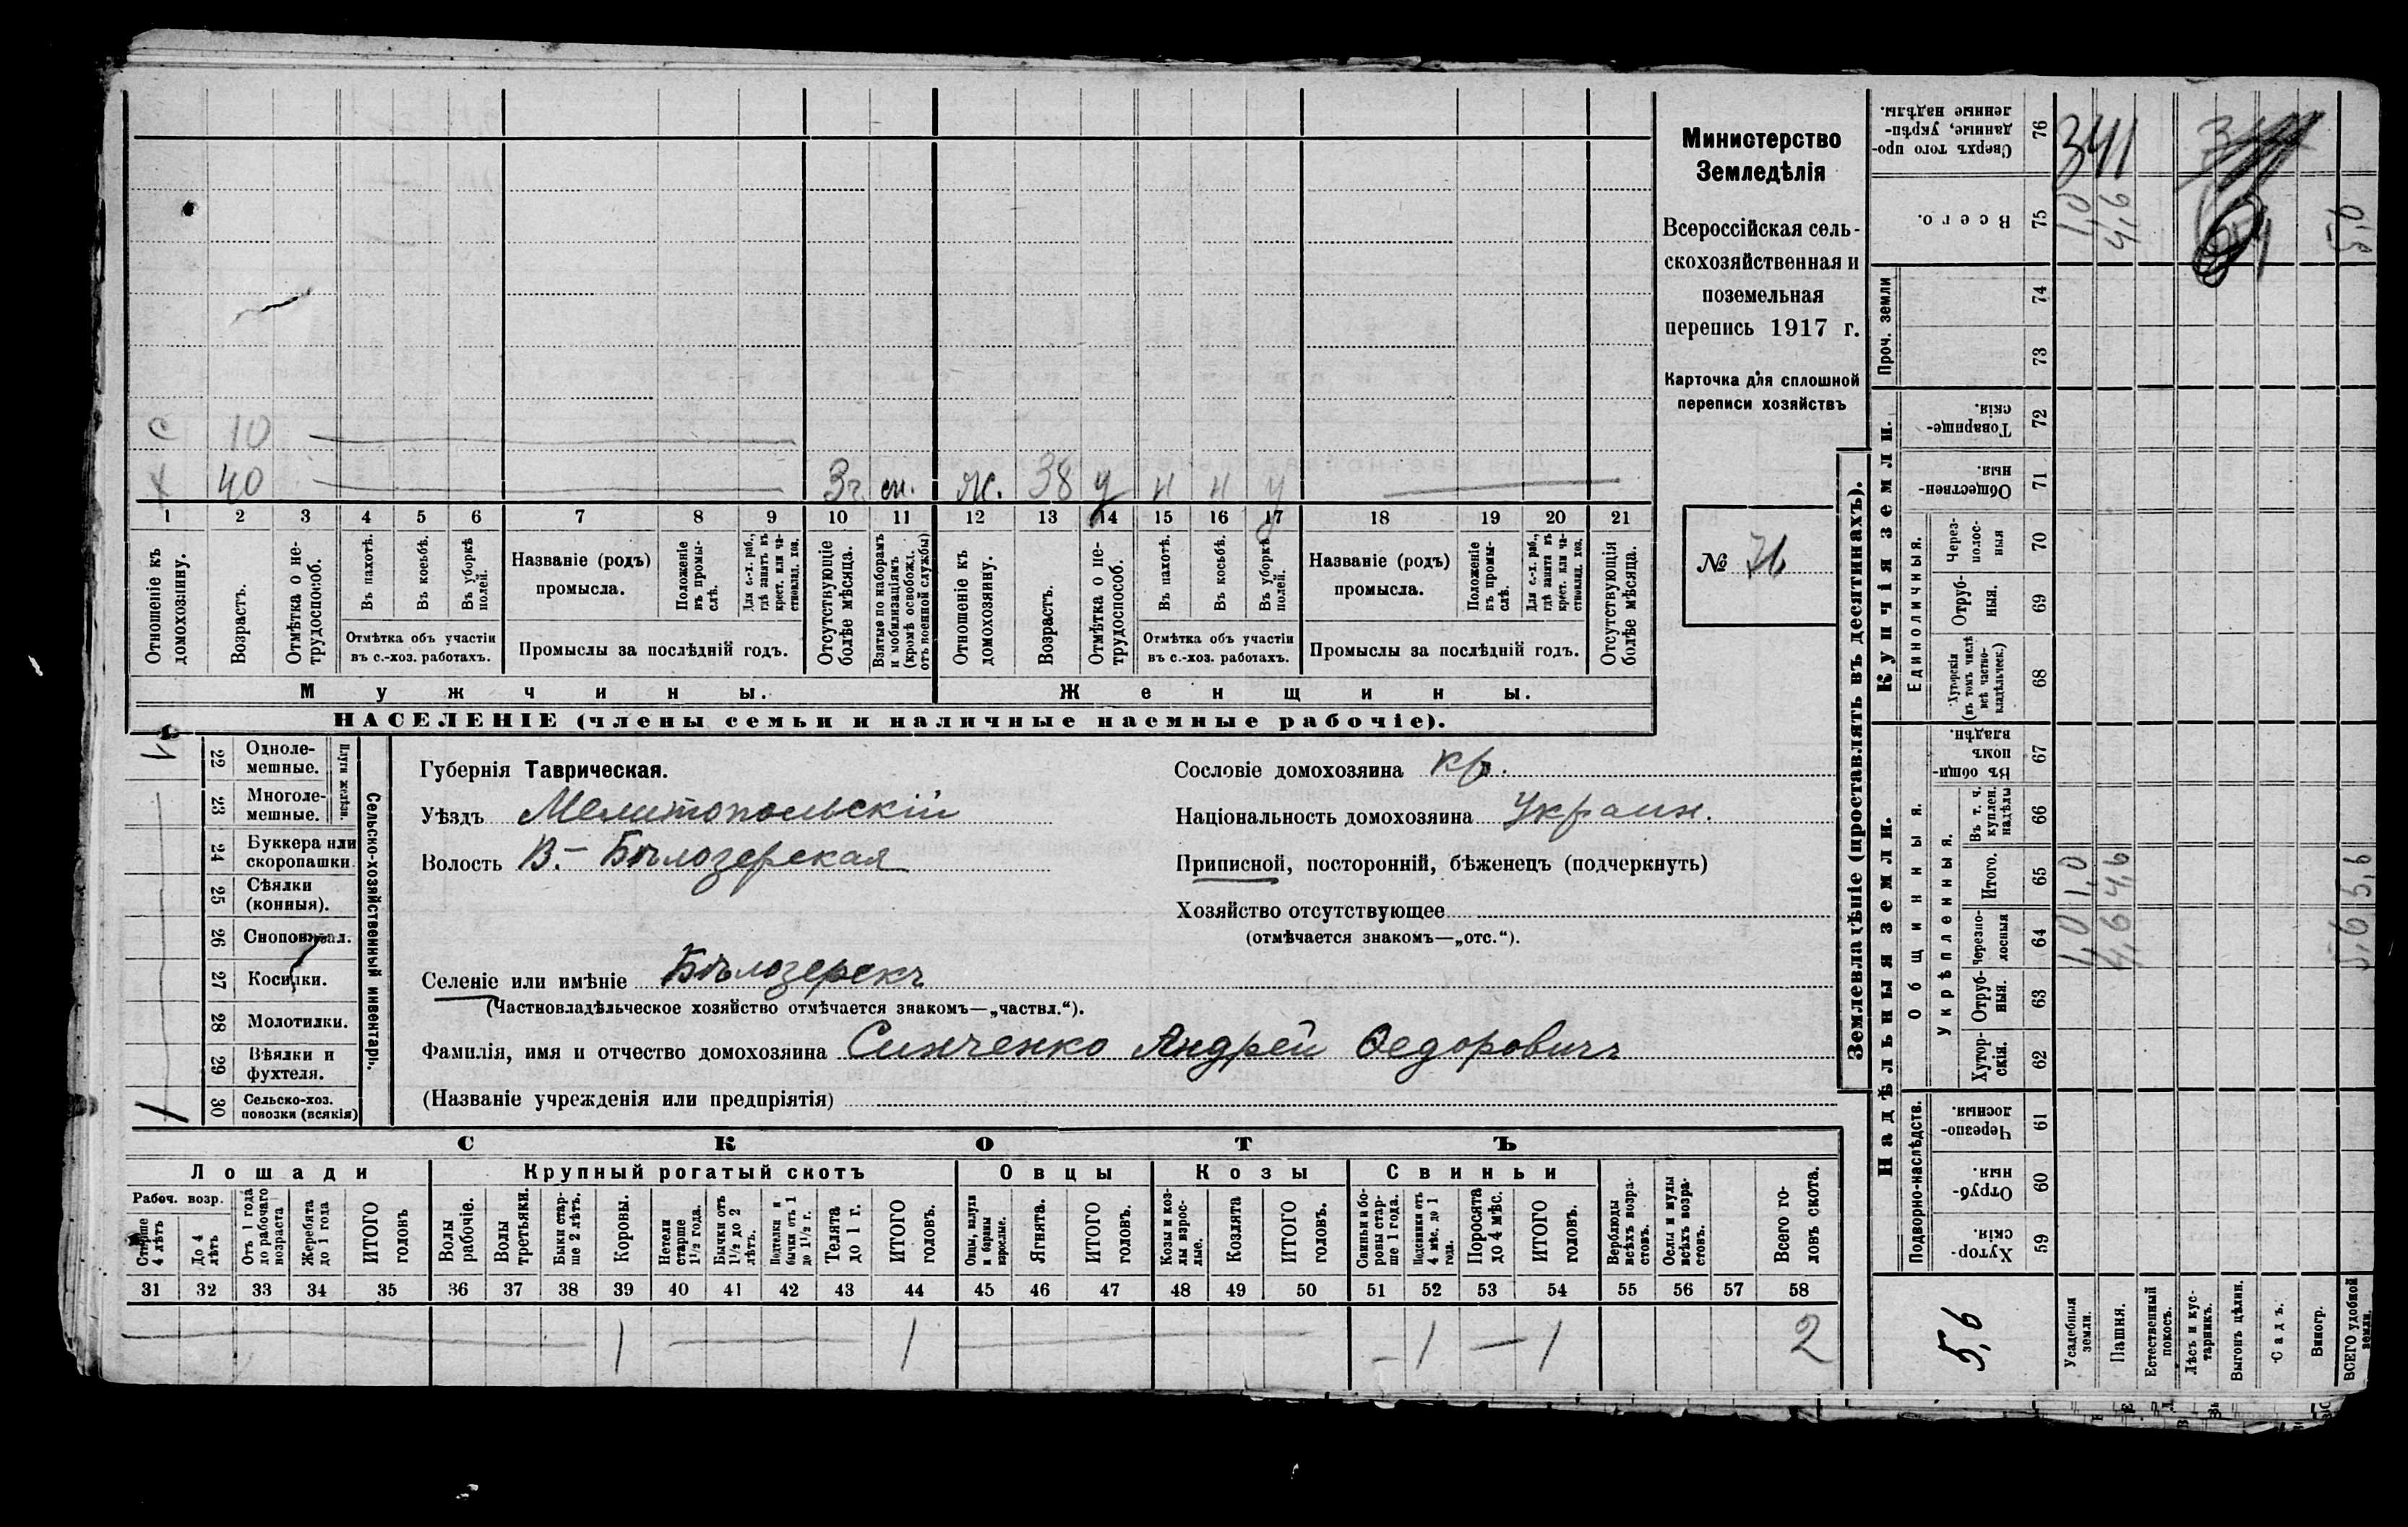 Министерство
Земледѣлія
Всероссійская сель-
скохозяйственная и
поземельная
перепись 1917 г.
Карточка для сплошной
переписи хозяйствъ
№ 71
с 10
х 40 3 г. м. ж. 38 у н н у
1 2 3 4 5 6 7 8 9 10 11 12 13 14 15 16 17 18 19 20 21
Отношеніе къ домохозяину.
Возрастъ.
Отмѣтка о не-
трудоспособ.
Въ пахотѣ.
Въ косьбѣ.
Въ уборкѣ полей.
Отмѣтка объ участіи
въ с.-хоз. работахъ.
Названіе (родъ)
промысла.
Положеніе въ промы-
слѣ.
Для с.-х. раб., гдѣ занятъ въ крест. или ча-
стновлад. хоз.
Промыслы за послѣдній годъ.
Отсутствующіе болѣе мѣсяца.
Взятые по наборамъ и мобилизаціямъ (кромѣ освобожд. отъ военной службы)
Отношеніе къ домохозяину.
Возрастъ.
Отмѣтка о не-
трудоспособ.
Въ пахотѣ.
Въ косьбѣ.
Въ уборкѣ полей.
Отмѣтка объ участіи
въ с.-хоз. работахъ.
Названіе (родъ)
промысла.
Положеніе въ промы-
слѣ.
Для с.-х. раб., гдѣ занята въ крест. или ча-
стновлад. хоз.
Промыслы за послѣдній годъ.
Отсутствующія болѣе мѣсяца.
Мужчины.
Женщины.
НАСЕЛЕНІЕ (члены семьи и наличные наемные рабочіе).
Сельско-хозяйственный инвентарь.
Плуги желѣзн.
22 Одноле-
мешные.
23 Многоле-
мешные.
24 Буккера или
скоропашки.
25 Сѣялки
(конныя).
26 Сноповязал.
27 Косилки.
28 Молотилки.
29 Вѣялки и
фухтеля.
1 30 Сельско-хоз.
повозки (всякія)
Губернія Таврическая.
Уѣздъ Мелитопольскій
Волость В.-Бѣлозерская
Селеніе или имѣніе Бѣлозерскъ
(Частновладѣльческое хозяйство отмѣчается знакомъ—„частвл.“).
Фамилія, имя и отчество домохозяина Синченко Андрей Ѳедоровичъ
(Названіе учрежденія или предпріятія)
Сословіе домохозяина кр.
Національность домохозяина Украин.
Приписной, посторонній, бѣженецъ (подчеркнуть)
Хозяйство отсутствующее
(отмѣчается знакомъ—„отс.“).
СКОТЪ
Лошади
Крупный рогатый скотъ
Овцы
Козы
Свиньи
Рабоч. возр.
Старше 4 лѣтъ
До 4 лѣтъ
Отъ 1 года до рабочаго возраста
Жеребята до 1 года
ИТОГО головъ
Волы рабочіе.
Волы третьяки.
Быки стар-
ше 2 лѣтъ.
Коровы.
Нетели старше 1½ года.
Бычки отъ 1½ до 2 лѣтъ.
Подтелки и бычки отъ 1 до 1½ г.
Телята до 1 г.
ИТОГО головъ.
Овцы, валухи и бараны взрослые.
Ягнята.
ИТОГО головъ.
Козы и коз-
лы взрос-
лые.
Козлята
ИТОГО головъ.
Свиньи и бо-
ровы стар-
ше 1 года.
Подсвинки отъ 4 мѣс. до 1 года.
Поросята до 4 мѣс.
ИТОГО головъ.
Верблюды всѣхъ возра-
стовъ.
Ослы и мулы всѣхъ возра-
стовъ.
Всего го-
ловъ скота.
31 32 33 34 35 36 37 38 39 40 41 42 43 44 45 46 47 48 49 50 51 52 53 54 55 56 57 58
1 1 1 1 2
Землевладѣніе (проставлять въ десятинахъ).
Надѣльныя земли.
Купчія земли.
Проч. земли
Подворно-наслѣдств.
Общинныя.
Укрѣпленныя.
Единоличныя.
Сверхъ того про-
данные, укрѣп-
ленные надѣлы.
76
Всего.
75
74
73
Товарище-
скія.
72
Обществен-
ныя.
71
Через-
полос-
ныя
70
Отруб-
ныя.
69
Хуторскія
(въ томъ числѣ
всѣ частно-
владѣльческ.)
68
Въ общин-
номъ
владѣн.
67
Въ т. ч.
куплен.
надѣлы
66
Итого.
65
Черезпо-
лосныя
64
Отруб-
ныя.
63
Хутор-
скія.
62
Черезпо-
лосныя.
61
Отруб-
ныя.
60
Хутор-
скія.
59
5,6
Усадебныя земли.
Пашня.
Естественный покосъ.
Лѣсъ и кус-
тарникъ.
Выгонъ цѣлин.
Садъ.
Виногр.
ВСЕГО удобной земли.
341
1,0
4,6
1,0 1,0
4,6 4,6
5,6 5,6